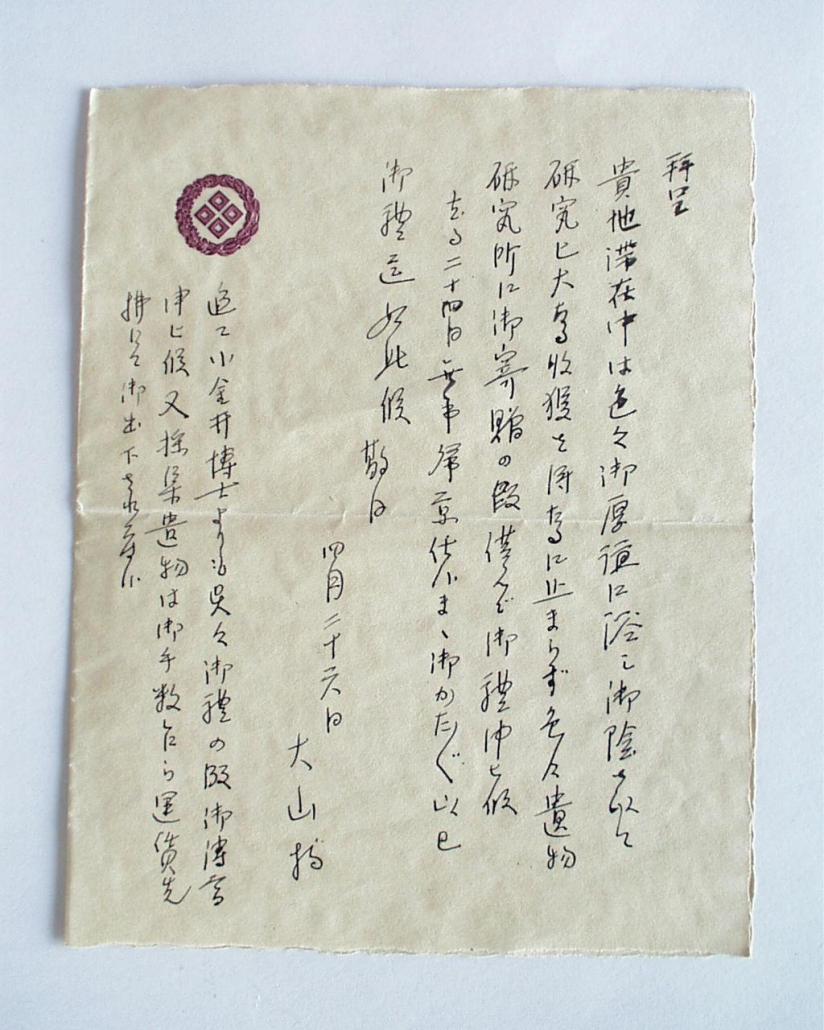 拝呈
貴地滞在中は色々御厚誼に浴し御陰を以て
研究上大なる收獲を得たるに止まらず色々遺物
研究所に御寄贈の段僅んで御禮申上候
去る二十四日無事帰京仕候まゝ御かたがた以上
御禮迄如此候 敬白
四月二十六日
大山柏
追て小金井博士よりも呉々御禮の段御傳言
申上候又採集遺物は御手数乍ら運賃先
拂にて御出下され度候